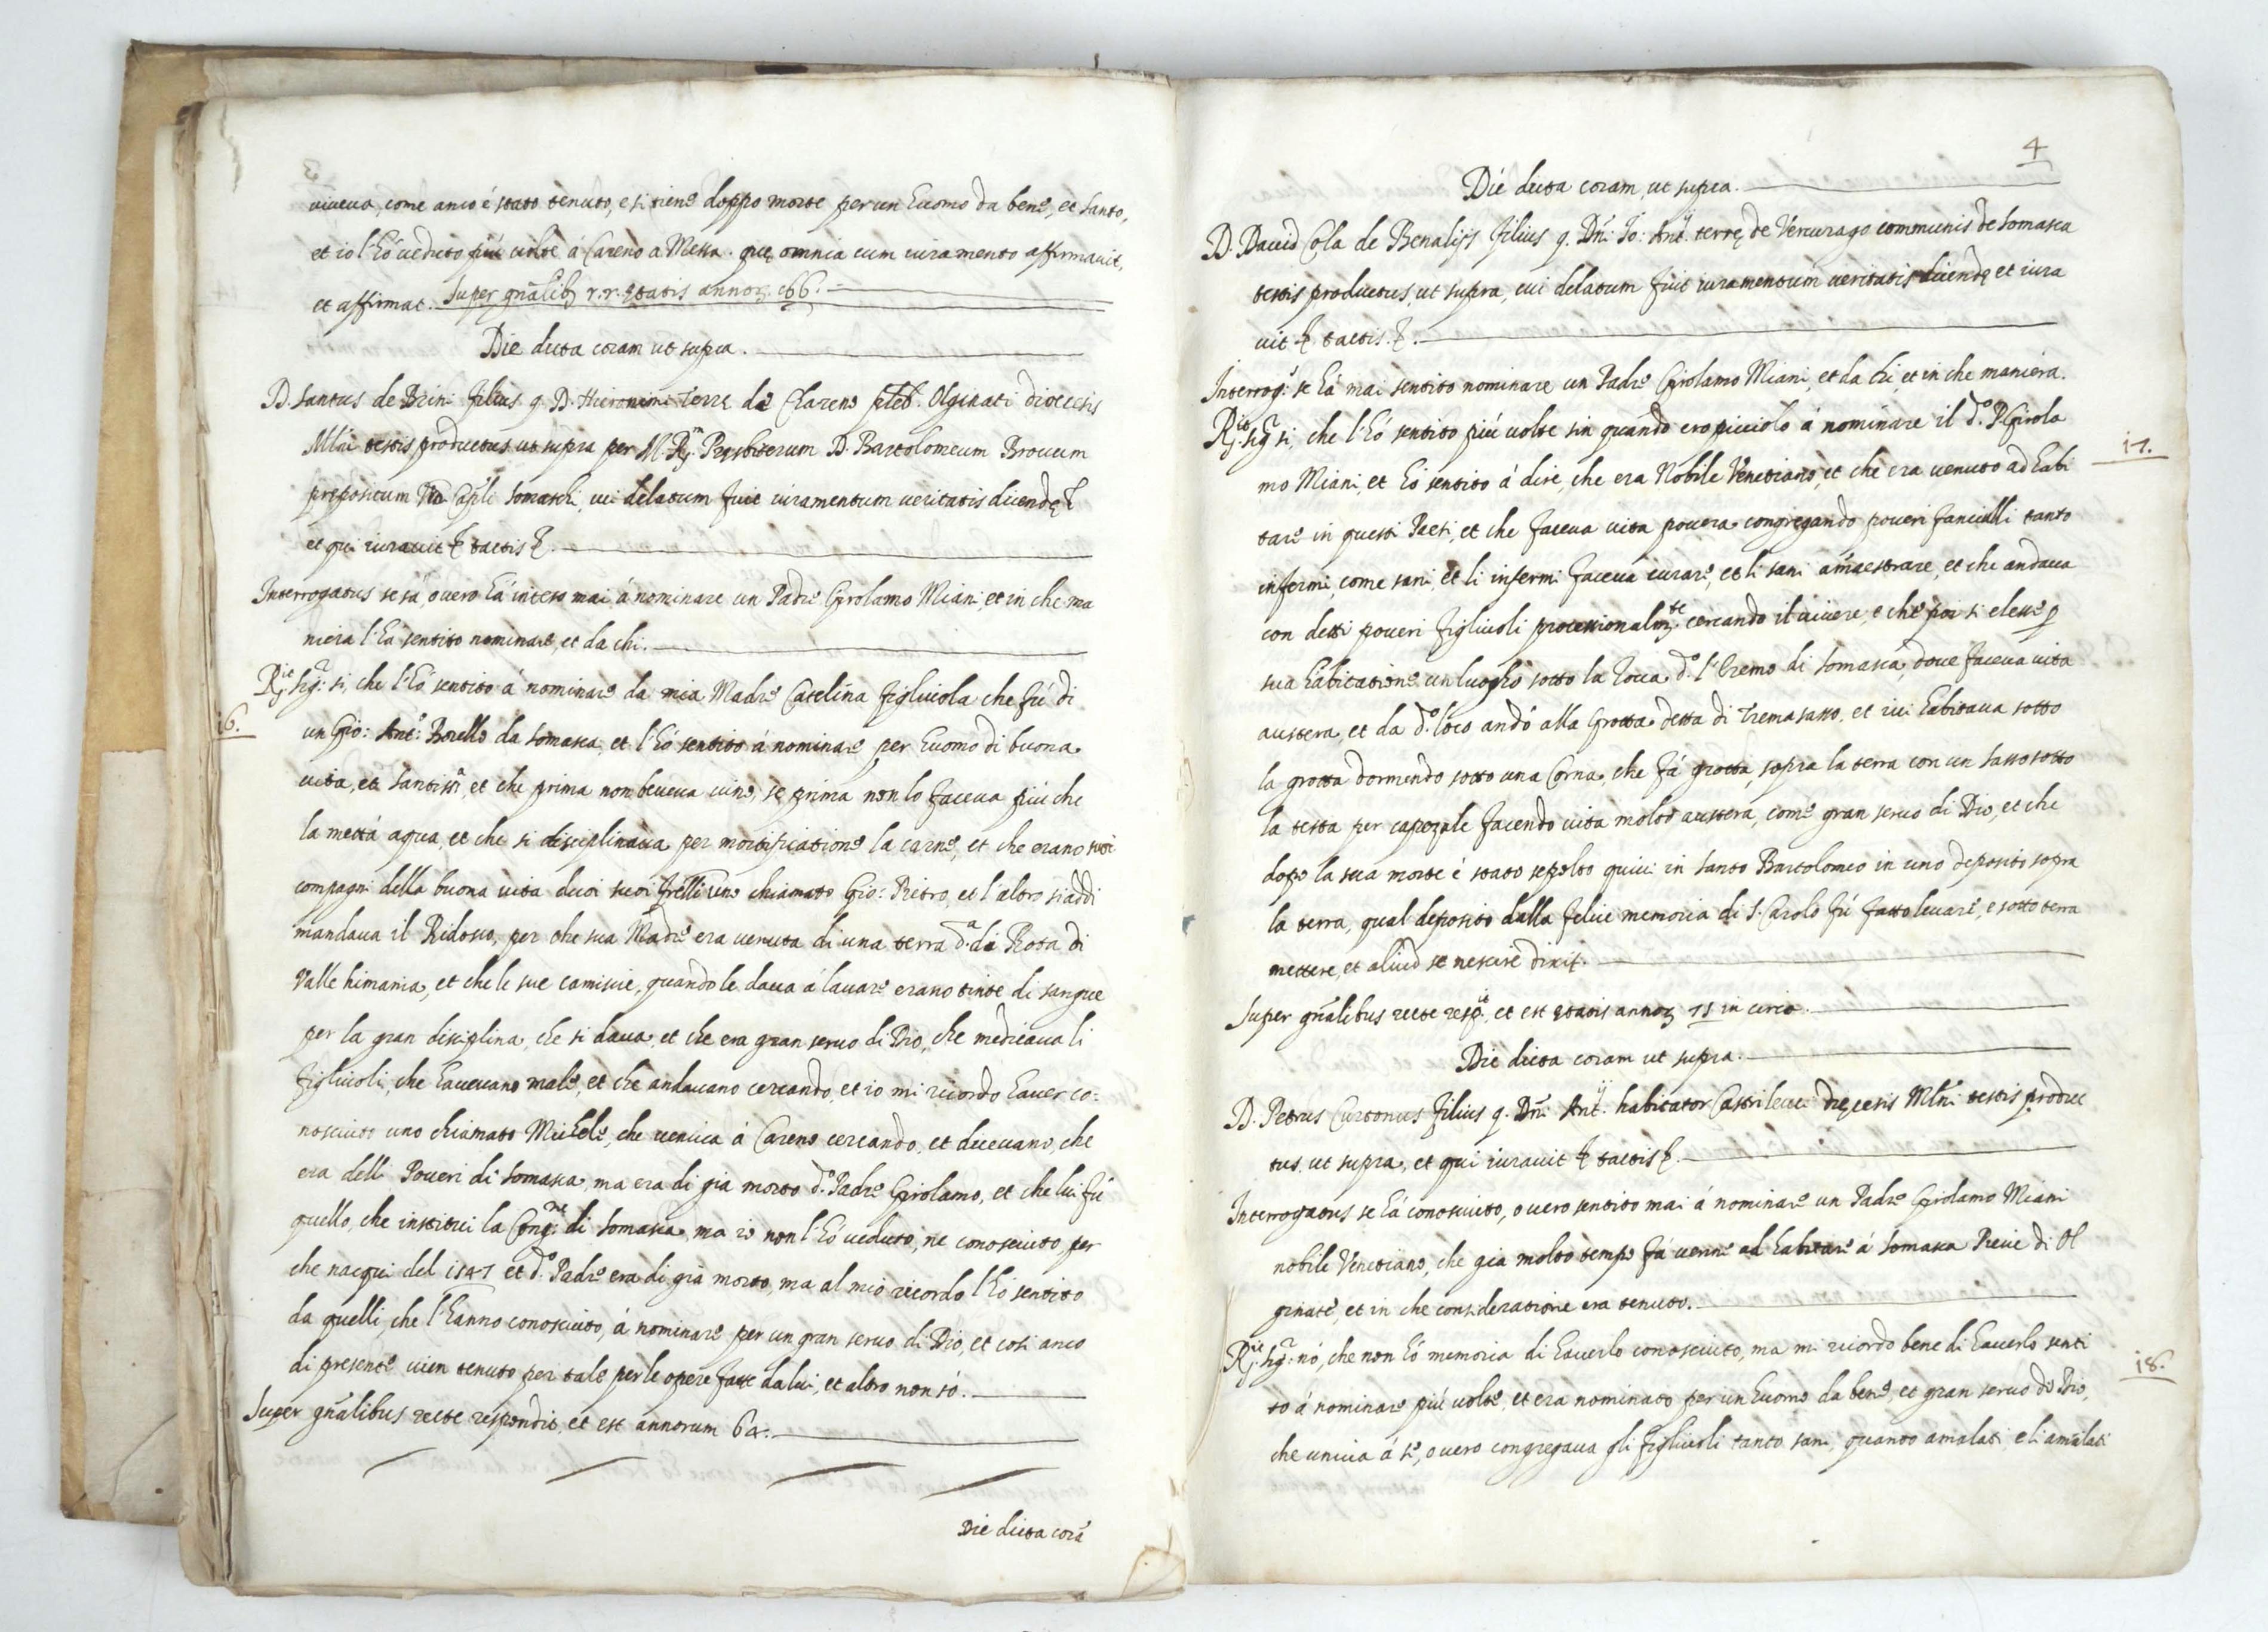 viveva, come anco é stato tenuto, e si tiene doppo morte per un huomo da bene, et santo,
et io l'hó veduto piú volte á Careno a Messa. quę omnia cum iuramento affirmavit,
et affirmat. Super gñalib9 r.r. ętatis annoꝝ 66.
Die dicta coram ut supra.
D. Santus de Brini filius q. D. Hieronimi Terrę de Chareno pleb. Olginati diocesis
Mlãi testis productus ut supra per M. R. Presbiterum D. Bartolomeum Brocum
prepositum Somaschi, cui delatum fuit iuramentum veritatis dicendę
et qui iuravit tactis
Interrogatus se sá, overo há inteso mai á nominare un Padre Girolamo Miani et in che ma
niera l'há sentito nominare, et da chi.
R.it sig.r si, che l'hó sentito á nominare da mia Madre Catelina figliuola che fú di
16.
un Gio: Ant.o Borello da Somasca, et l'hó sentito á nominare per huomo di buona
vita, et santiss.a, et che prima non beveva vino, se prima non lo faceva piú che
la mettá aqua, et che si disciplinava per mortificatione la carne, et che erano suoi
compagni della buona vita duoi suoi frelli uno chiamato Gio: Pietro, et l'altro si addi
mandava il Ridosso, per che sua Madre era venuta di una terra d.a di Rota di
Valle himania, et che le sue camiscie, quando le dava á lavare erano tinte di sangue
per la gran disciplina, che si dava, et che era gran servo di Dio, che medicava li
figliuoli, che havevano male, et che andavano cercando, et io mi ricordo haver co:
nosciuto uno chiamato Michele, che veniva á Careno cercando, et dicevano, che
era delli Poveri di Somasca, ma era di giá morto d.o Padre Girolamo, et che lui fú
quello, che instituí la Cong.ne di Somasca, ma io non l'hó veduto, ne conosciuto, per
che nacqui del 1547 et d.o Padre era di giá morto, ma al mio ricordo l'hó sentito
da quelli, che l'hanno conosciuto, á nominare per un gran servo di Dio, et cosi anco
di presente vien tenuto per tale per le opere fatte da lui, et altro non só.
Super gñalibus recte respondit, et est annorum 64.
Die dicta corã
4
Die dicta coram, ut supra.
D. David Cola de Benalijs filius q. Dñi Io: Ant.ij terrę de Vercurago communis de Somasca
testis productus, ut supra, cui delatum fuit iuramentum veritatis dicendę et iura
vit tactis
Interrog.s se há mai sentito nominare un Padre Girolamo Miani, et da chi, et in che maniera.
R.it sig.r si, che l'hó sentito piú volte sin quando ero picciolo á nominare il d.o P. Girola
17.
mo Miani, et hó sentito á dire, che era Nobile Venetiano, et che era venuto ad habi
tare in questi Paesi, et che faceva vita povera congregando poveri fanciulli tanto
infermi, come sani, et li infermi faceva curare, et li sani amaestrare, et che andava
con detti poveri figliuoli processionalm.te cercando il vivere, e che poi si elesse p
sua habitatione un luogho sotto la Rocca d.o l'Eremo di Somasca, dove faceva vita
austera, et da d.o loco andó alla Grotta detta di Tremasasso, et ivi habitava sotto
la grotta dormendo sotto una Corna, che fá grotta, sopra la terra con un sasso sotto
la testa per capezale facendo vita molto austera, come gran servo di Dio, et che
dopo la sua morte é stato sepolto quivi in Santo Bartolomeo in uno deposito sopra
la terra, qual deposito dalla felice memoria di S. Carolo fú fatto levare, e sotto terra
mettere, et aliud se nescire dixit.
Super gñalibus recte resp.it, et est ętatis annoꝝ 75 in circa.
Die dicta coram ut supra.
D. Petrus Curtonus filius q. Dñi Ant.ij habitator Castrileuci diecesis Mlñi testis produc
tus, ut supra, et qui iuravit tactis
Interrogatus se há conosciuto, overo sentito mai á nominare un Padre Girolamo Miani
nobile Venetiano, che giá molto tempo fá venne ad habitare á Somasca Pieve di Ol
ginate, et in che consideratione era tenuto.
R.it sig.r nó, che non hó memoria di haverlo conosciuto, ma mi ricordo bene di haverlo senti
18.
to á nominare piú volte, et era nominato per un huomo da bene, et gran servo de Dio,
che univa á sé, overo congregava gli figliuoli tanto sani, quanto amalati, e li amalati